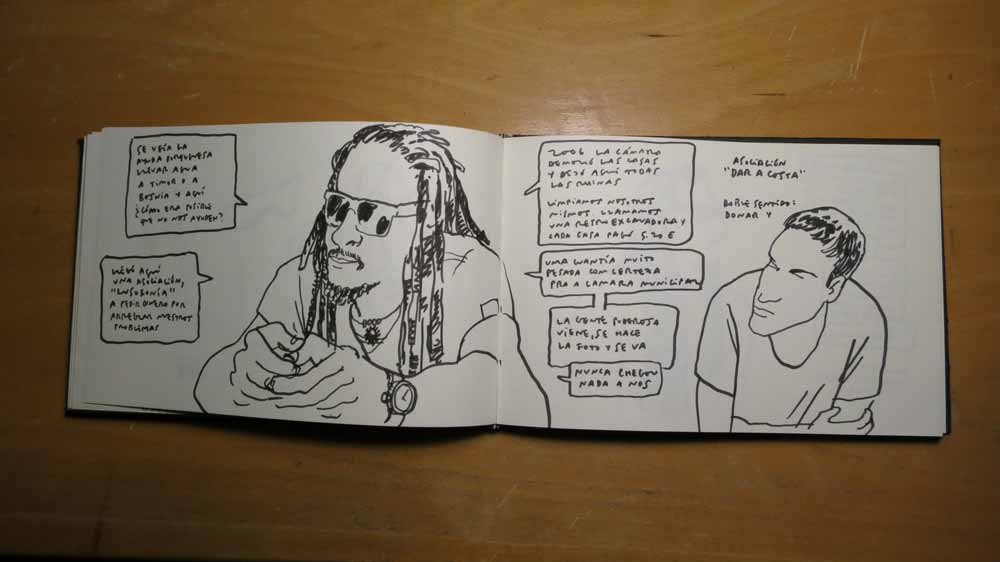 SE VEÍA LA
AYUDA PORTUGUESA
LLEVAR AGUA
A TIMOR O A
BOSNIA Y AQUÍ
¿CÓMO ERA POSIBLE
QUE NO NOS AYUDEN?
AQUÍ
UNA ASOCIACIÓN,
A PEDIR DINERO POR
ARREGLAR NUESTROS
PROBLEMAS
2006 LA CÁMARA
DEMOLIÓ LAS CASAS
Y DEJÓ AQUÍ TODAS
LAS RUINAS
LIMPIAMOS NOSOTROS
MISMOS. LLAMAMOS
UNA RETRO EXCAVADORA Y
CADA CASA PAGÓ 5.20 €
UMA MUITO
PESADA COM CERTEZA
PRA A CAMARA MUNICIPAL
LA GENTE PODEROSA
VIENE, SE HACE
LA FOTO Y SE VA
NUNCA CHEGOU
NADA A NOS
ASOCIACIÓN
"DAR A COSTA"
DOBLE SENTIDO:
DONAR Y